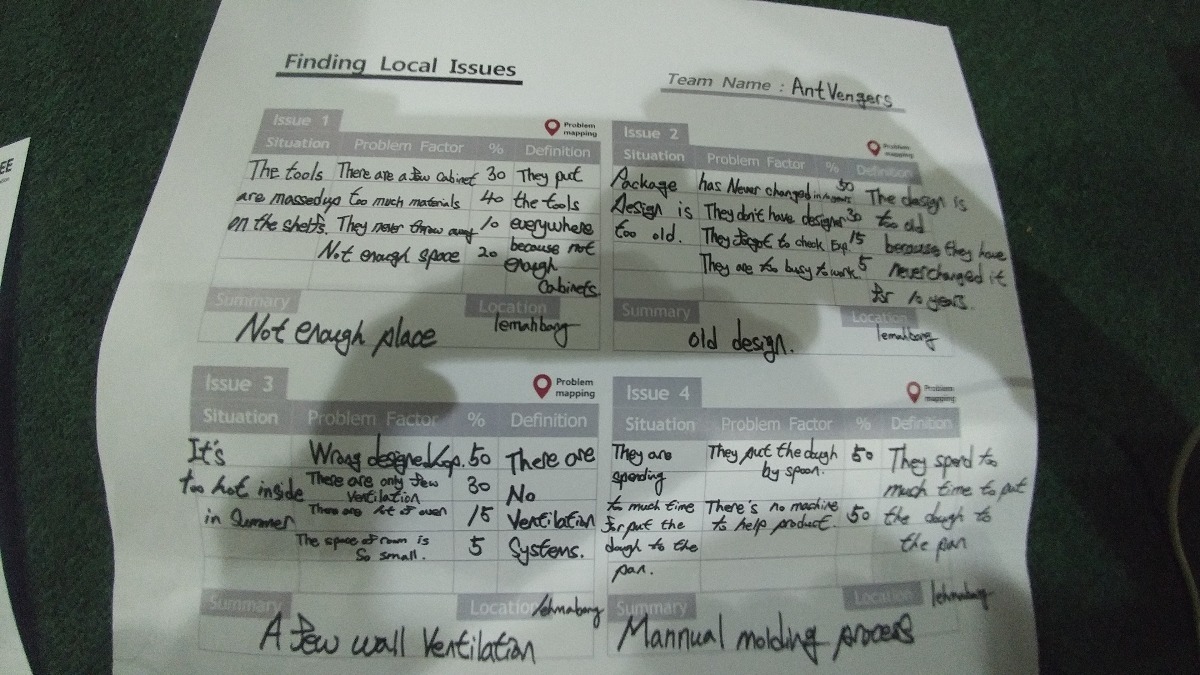 Finding Local Issues
Team Name : AntVengers
EE
Issue 1
Problem mapping
Situation Problem Factor % Definition
The tools There are a few cabinet 30 They put
are massedup too much materials 40 the tools
on the shelfs. They never throw away 10 everywhere
Not enough space 20 because not
enough
Cabinets.
Summary Location
Not enough place lemahbang
Issue 2
Problem mapping
Situation Problem Factor % Definition
Package has Never changed in 50 The design is
Design is They don't have designer 30 too old
too old. They forgot to check Exp. 15 because they have
They are too busy to work. 5 never changed it
for 10 years.
Summary Location
old design. lemahbang
Issue 3
Problem mapping
Situation Problem Factor % Definition
It's Wrong designed 50 There are
too hot inside There are only few Ventilation 30 No
in Summer There are lot of oven 15 Ventilation
The space of room is So small. 5 Systems.
Summary Location lehmabang
A few wall Ventilation
Issue 4
Problem mapping
Situation Problem Factor % Definition
They are They put the dough 50 They spend to
spending by spoon. much time to put
to much time There's no machine 50 the dough to
for put the to help product. the pan
dough to the
pan.
Summary Location lehmabang
Mannual molding process